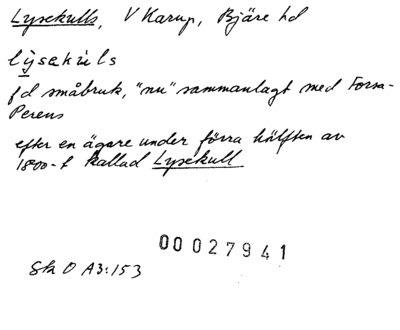 Lysekulls, V Karup, Bjäre hd
lỳsekúls
fd småbruk, "nu" sammanlagt med Forsa-
Perens
efter en ägare under förra hälften av
1800-t kallad Lysekull
00027941
Sk O A3:153